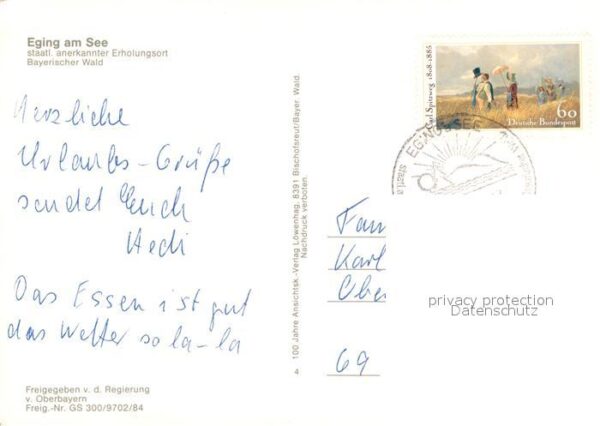 Eging am See
staatl. anerkannter Erholungsort
Bayerischer Wald
Herzliche
Urlaubs-Grüße
sendet Euch
Hedi
Das Essen ist gut
das Wetter so la-la
Freigegeben v. d. Regierung
v. Oberbayern
Freig.-Nr. GS 300/9702/84
100 Jahre Ansichtsk.-Verlag Löwenhag, 8391 Bischofsreut/Bayer Wald.
Nachdruck verboten.
4
Carl Spitzweg 1808-1885
60
Deutsche Bundespost
EGING a. SEE
Fam
Karl
Ober
69
privacy protection
Datenschutz